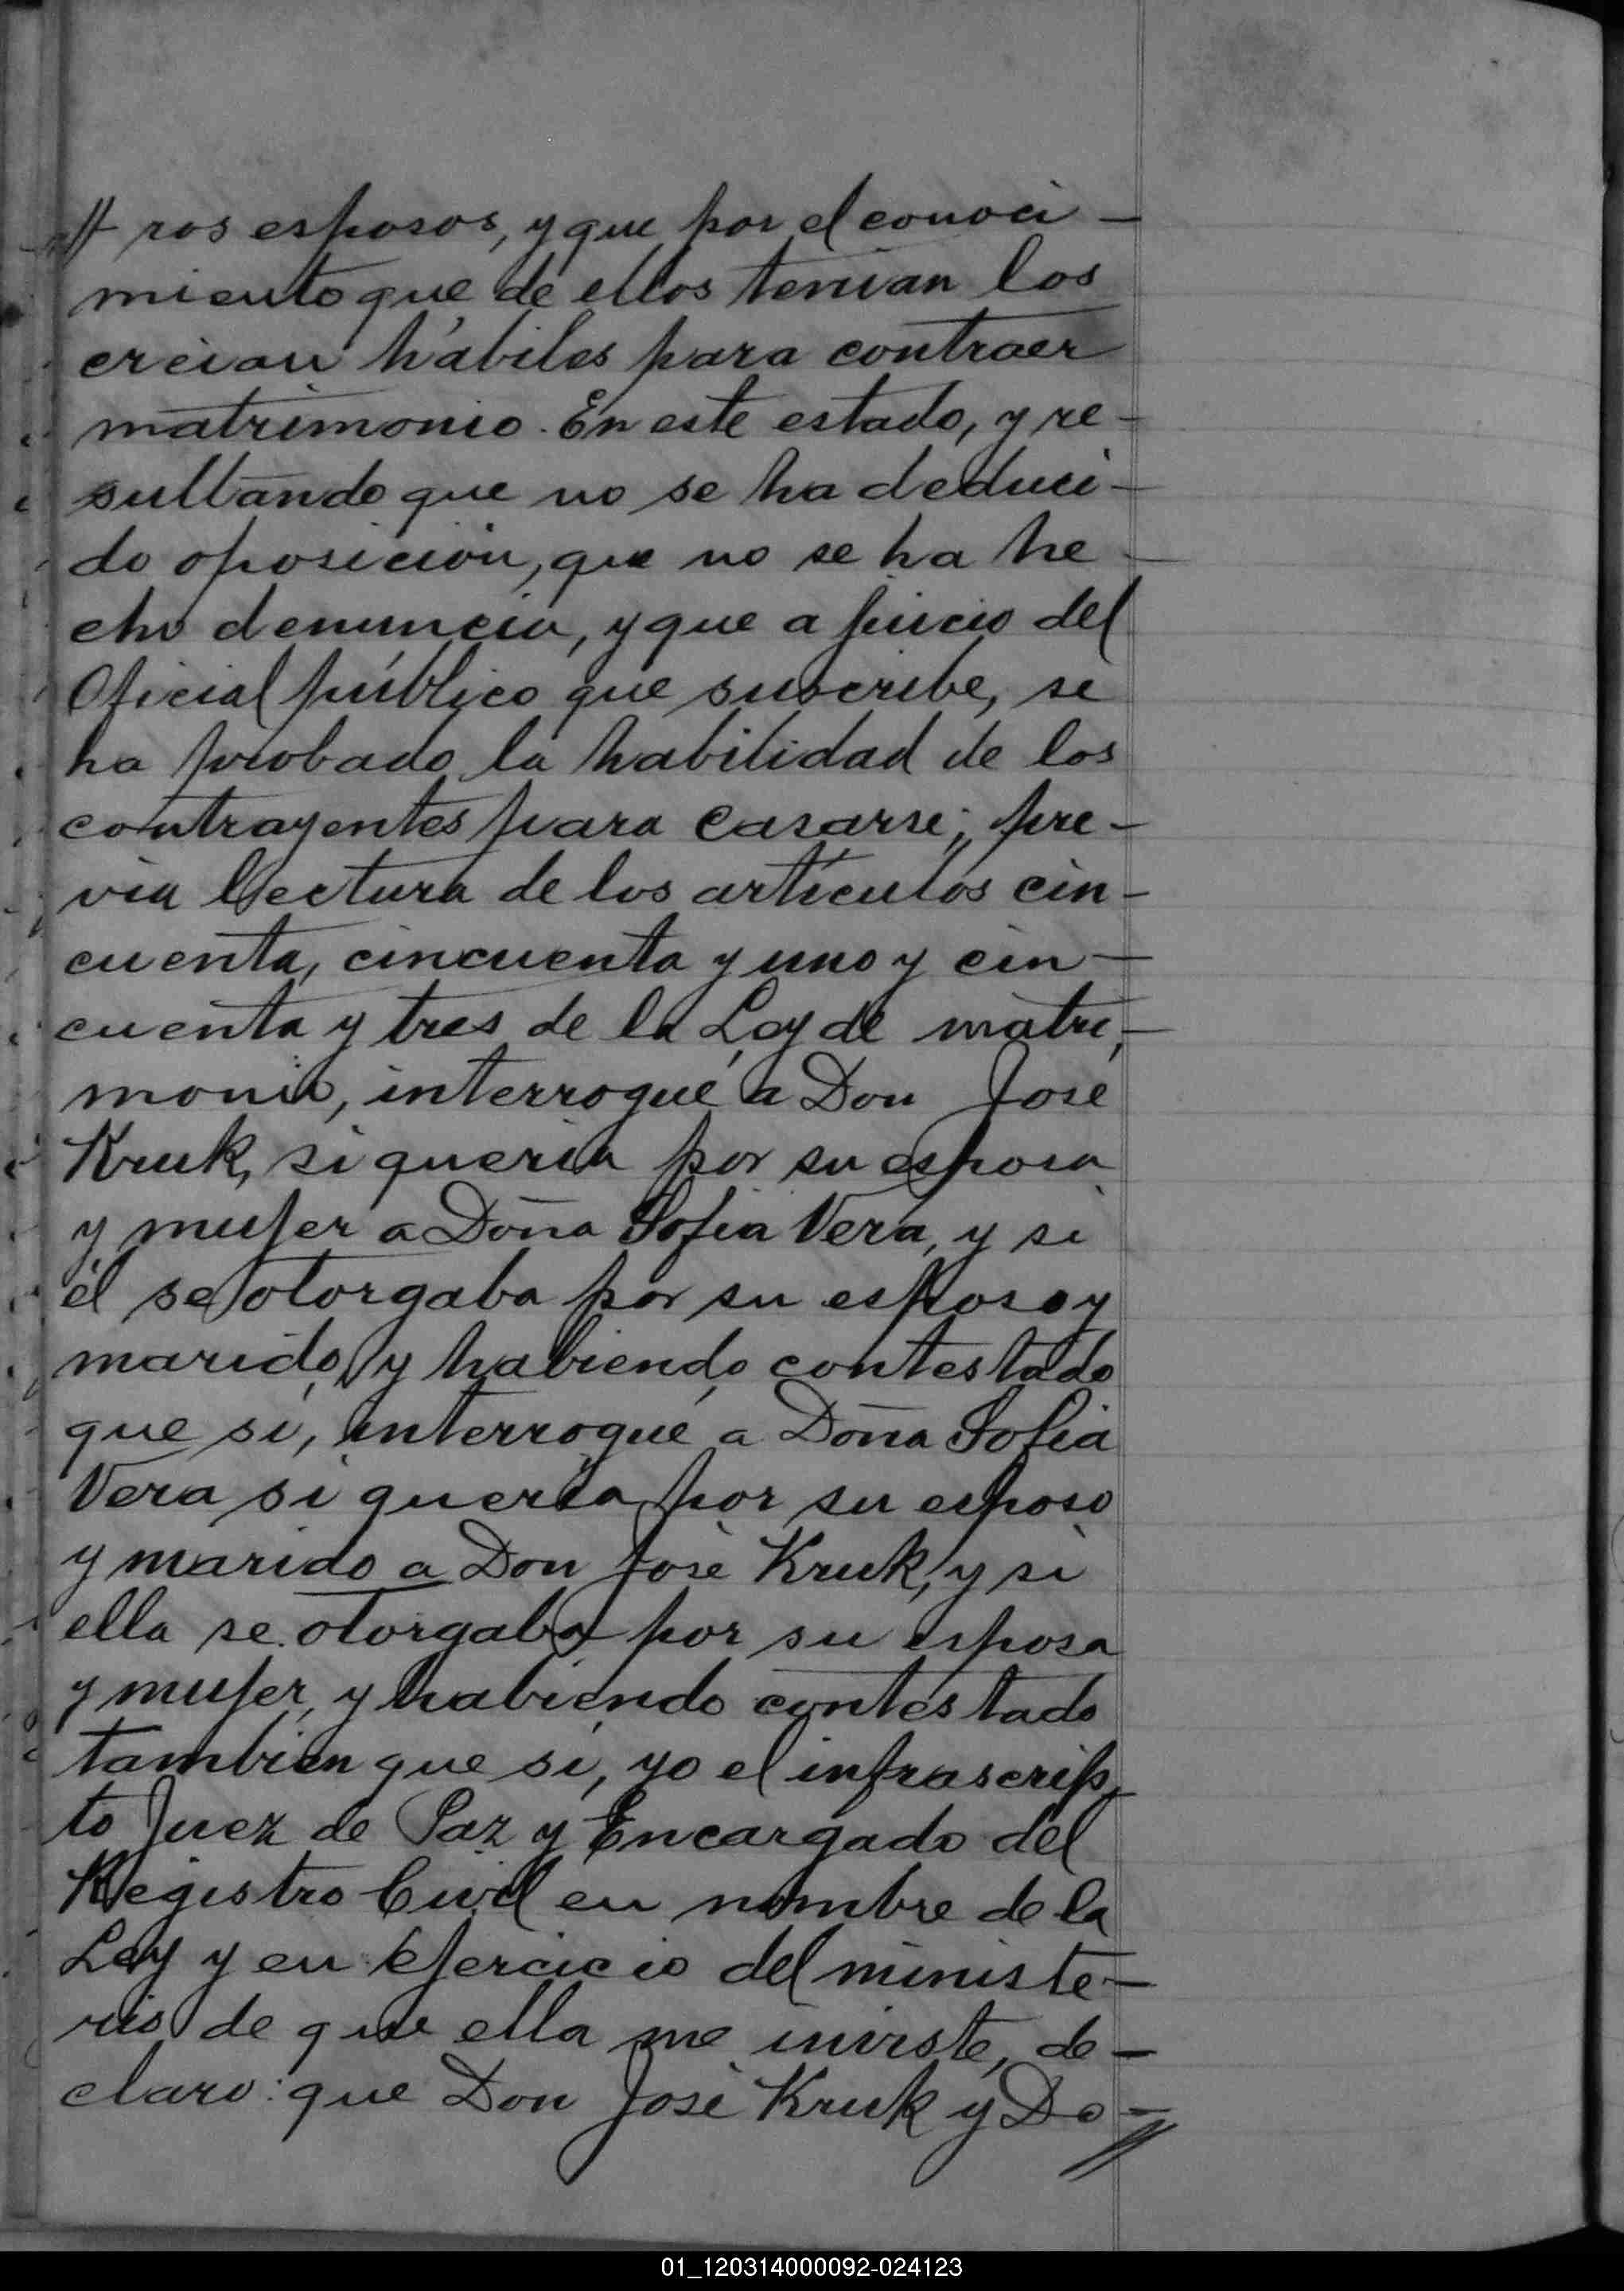 // ros esposos, y que por el conoci-
miento que de ellos tenían los
creían hábiles para contraer
matrimonio. En este estado, y re-
sultando que no se ha deduci-
do oposición, que no se ha he-
cho denuncia, y que a juicio del
Oficial público que suscribe, se
ha probado la habilidad de los
contrayentes para casarse; pre-
via lectura de los artículos cin-
cuenta, cincuenta y uno y cin-
cuenta y tres de la Ley de matri-
monio, interrogué a Don José
Kruk, si quería por su esposa
y mujer a Doña Sofía Vera, y si
él se otorgaba por su esposo y
marido, y habiendo contestado
que sí, interrogué a Doña Sofía
Vera si quería por su esposo
y marido a Don José Kruk, y si
ella se otorgaba por su esposa
y mujer, y habiendo contestado
tambien que sí, yo el infrascrip-
to Juez de Paz y Encargado del
Registro Civil en nombre de la
Ley y en ejercicio del ministe-
rio de que ella me inviste, de-
claro: que Don José Kruk y Do-//
01_120314000092-024123